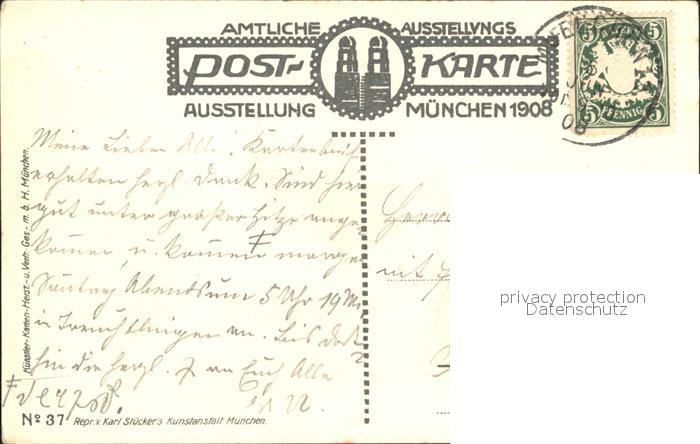 AMTLICHE AUSSTELLUNGS
POST- KARTE
AUSSTELLUNG MÜNCHEN 1908
5 5
PFENNIG
08
Meine Lieben Alle! Kartenbrief
erhalten herzl. Dank. Sind hier
gut unter großer Hitze ange-
kommen, u. kommen morgen
Sonntag Abends um 5 Uhr 19 M.
in Treuchtlingen an. Bis dort-
hin die herzl. an Euch Alle
Herrn
mit
Künstler-Karten-Herst.-u. Vertr. Ges. m. b. H. München.
No 37 Repr. v. Karl Stücker's Kunstanstalt München.
privacy protection
Datenschutz